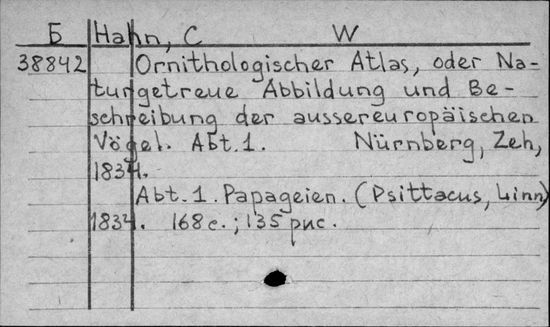 Б Hahn, C W
38842 Ornithologischer Atlas, oder Na-
turgetreue Abbildung und Be-
schreibung der aussereuropäischen
Vögel. Abt. 1. Nürnberg, Zeh,
1834.
Abt. 1. Papageien. (Psittacus, Linn)
1834. 168 с.; 135 рис.